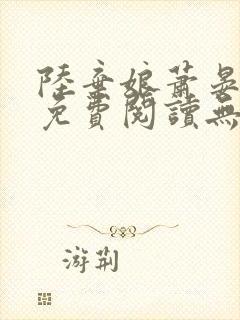 陸棄娘蕭晏
免費閱讀無
游荊